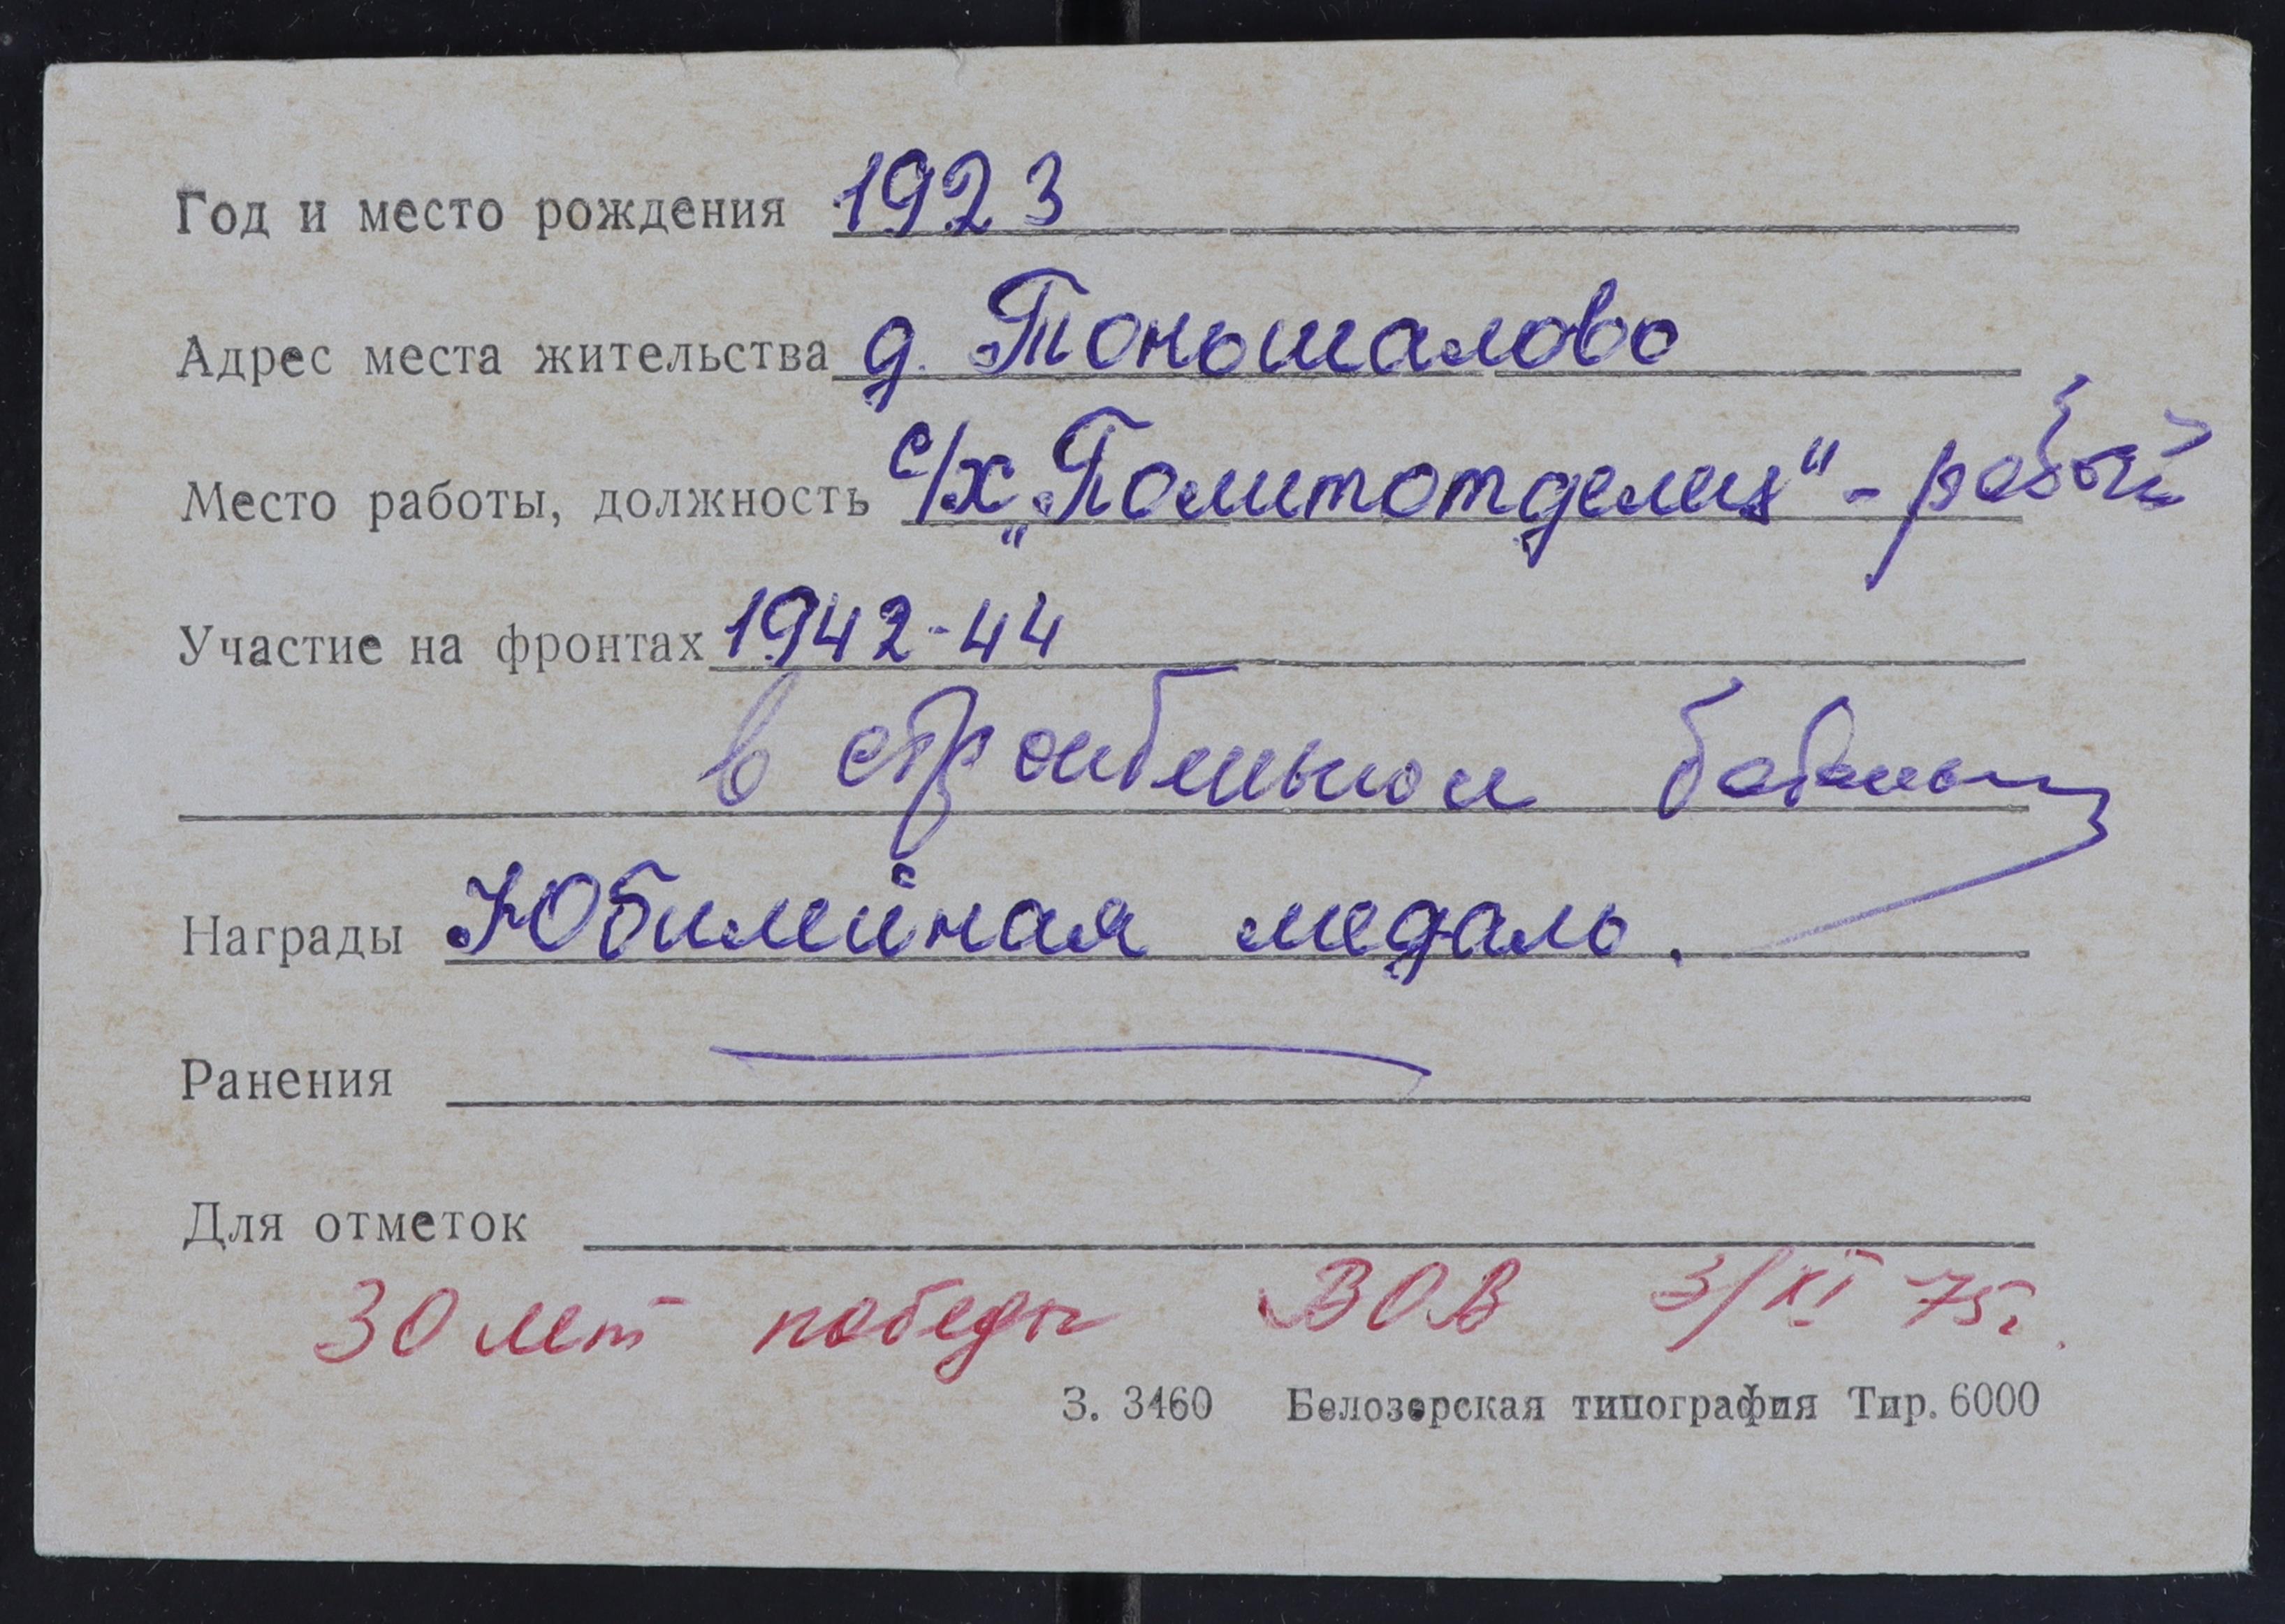 Год и место рождения 1923
Адрес места жительства д. Тоншалово
Место работы, должность с/х „Политотделец“ - рабочий
Участие на фронтах 1942-44
в строительном
Награды Юбилейная медаль.
Ранения
Для отметок
30 лет победы ВОВ 3/XI 75г.
З. 3460 Белозерская типография Тир. 6000